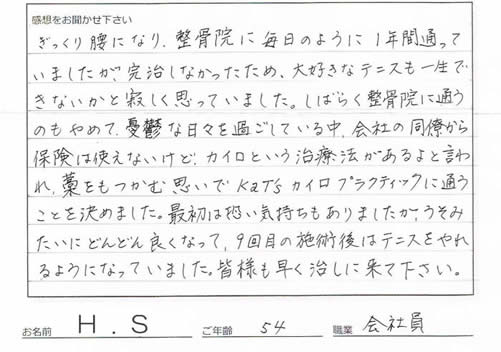 感想をお聞かせ下さい
ぎっくり腰になり、整骨院に毎日のように1年間通って
いましたが、完治しなかったため、大好きなテニスも一生で
きないかと寂しく思っていました。しばらく整骨院に通う
のもやめて、憂鬱な日々を過ごしている中、会社の同僚から
保険は使えないけど、カイロという治療法があるよと言わ
れ、藁をもつかむ思いでKaTsカイロプラクティックに通う
ことを決めました。最初は恐い気持ちもありましたが、うそみ
たいにどんどん良くなって、9回目の施術後はテニスをやれ
るようになっていました。皆様も早く治しに来て下さい。
お名前 H.S ご年齢 54 職業 会社員